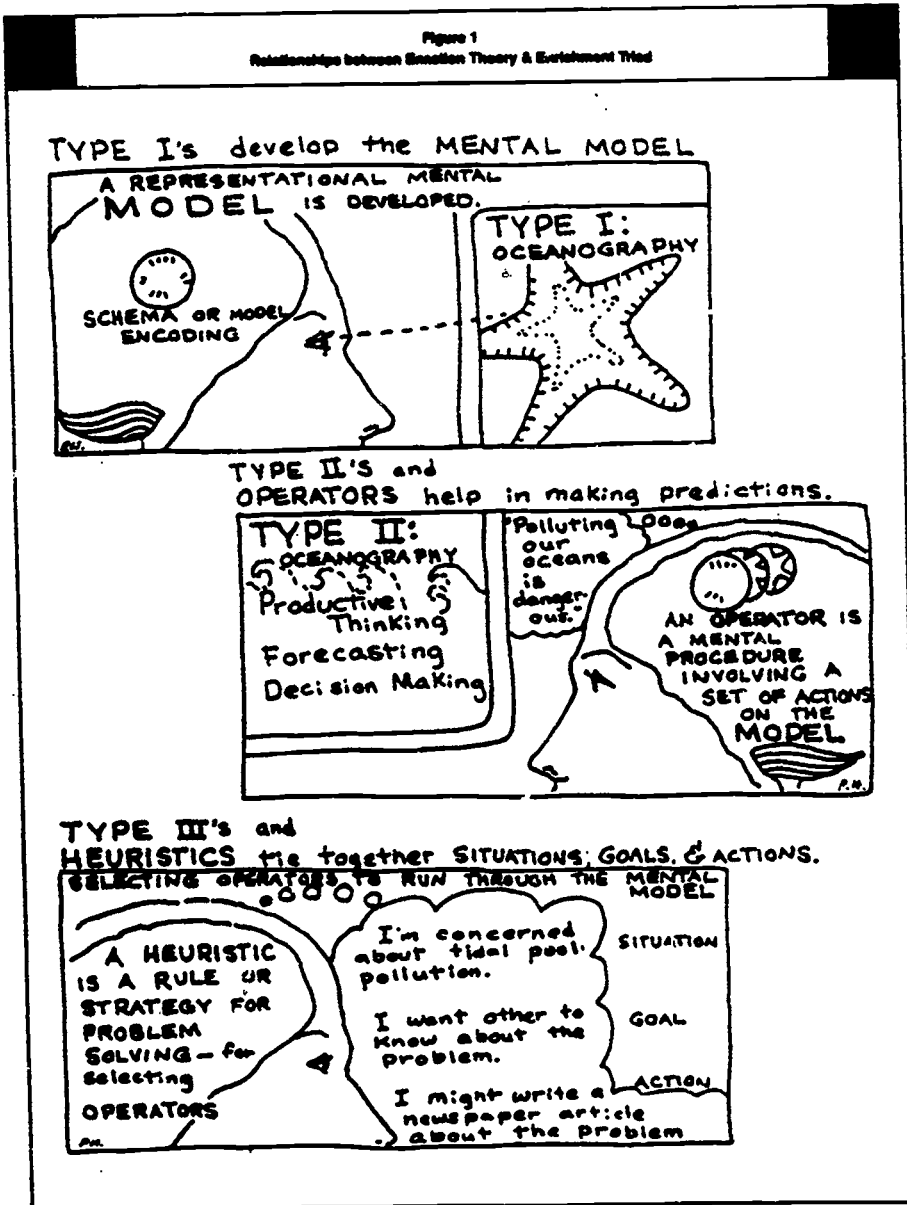 Figure 1
Relationships between Enaction Theory & Enrichment Triad
TYPE I's develop the MENTAL MODEL
A REPRESENTATIONAL MENTAL
MODEL IS DEVELOPED.
SCHEMA OR MODEL
ENCODING
TYPE I:
OCEANOGRAPHY
P.W.
TYPE II's and
OPERATORS help in making predictions.
TYPE II:
OCEANOGRAPHY
Productive
Thinking
Forecasting
Decision Making
"Polluting
our
oceans
is
danger-
ous."
AN OPERATOR IS
A MENTAL
PROCEDURE
INVOLVING A
SET OF ACTIONS
ON THE
MODEL
P.W.
TYPE III's and
HEURISTICS tie together SITUATIONS, GOALS, & ACTIONS.
SELECTING OPERATORS TO RUN THROUGH THE MENTAL
MODEL
A HEURISTIC
IS A RULE OR
STRATEGY FOR
PROBLEM
SOLVING — for
selecting
OPERATORS
P.W.
I'm concerned
about tidal pool
pollution.
I want other to
know about the
problem.
I might write a
newspaper article
about the problem
SITUATION
GOAL
ACTION